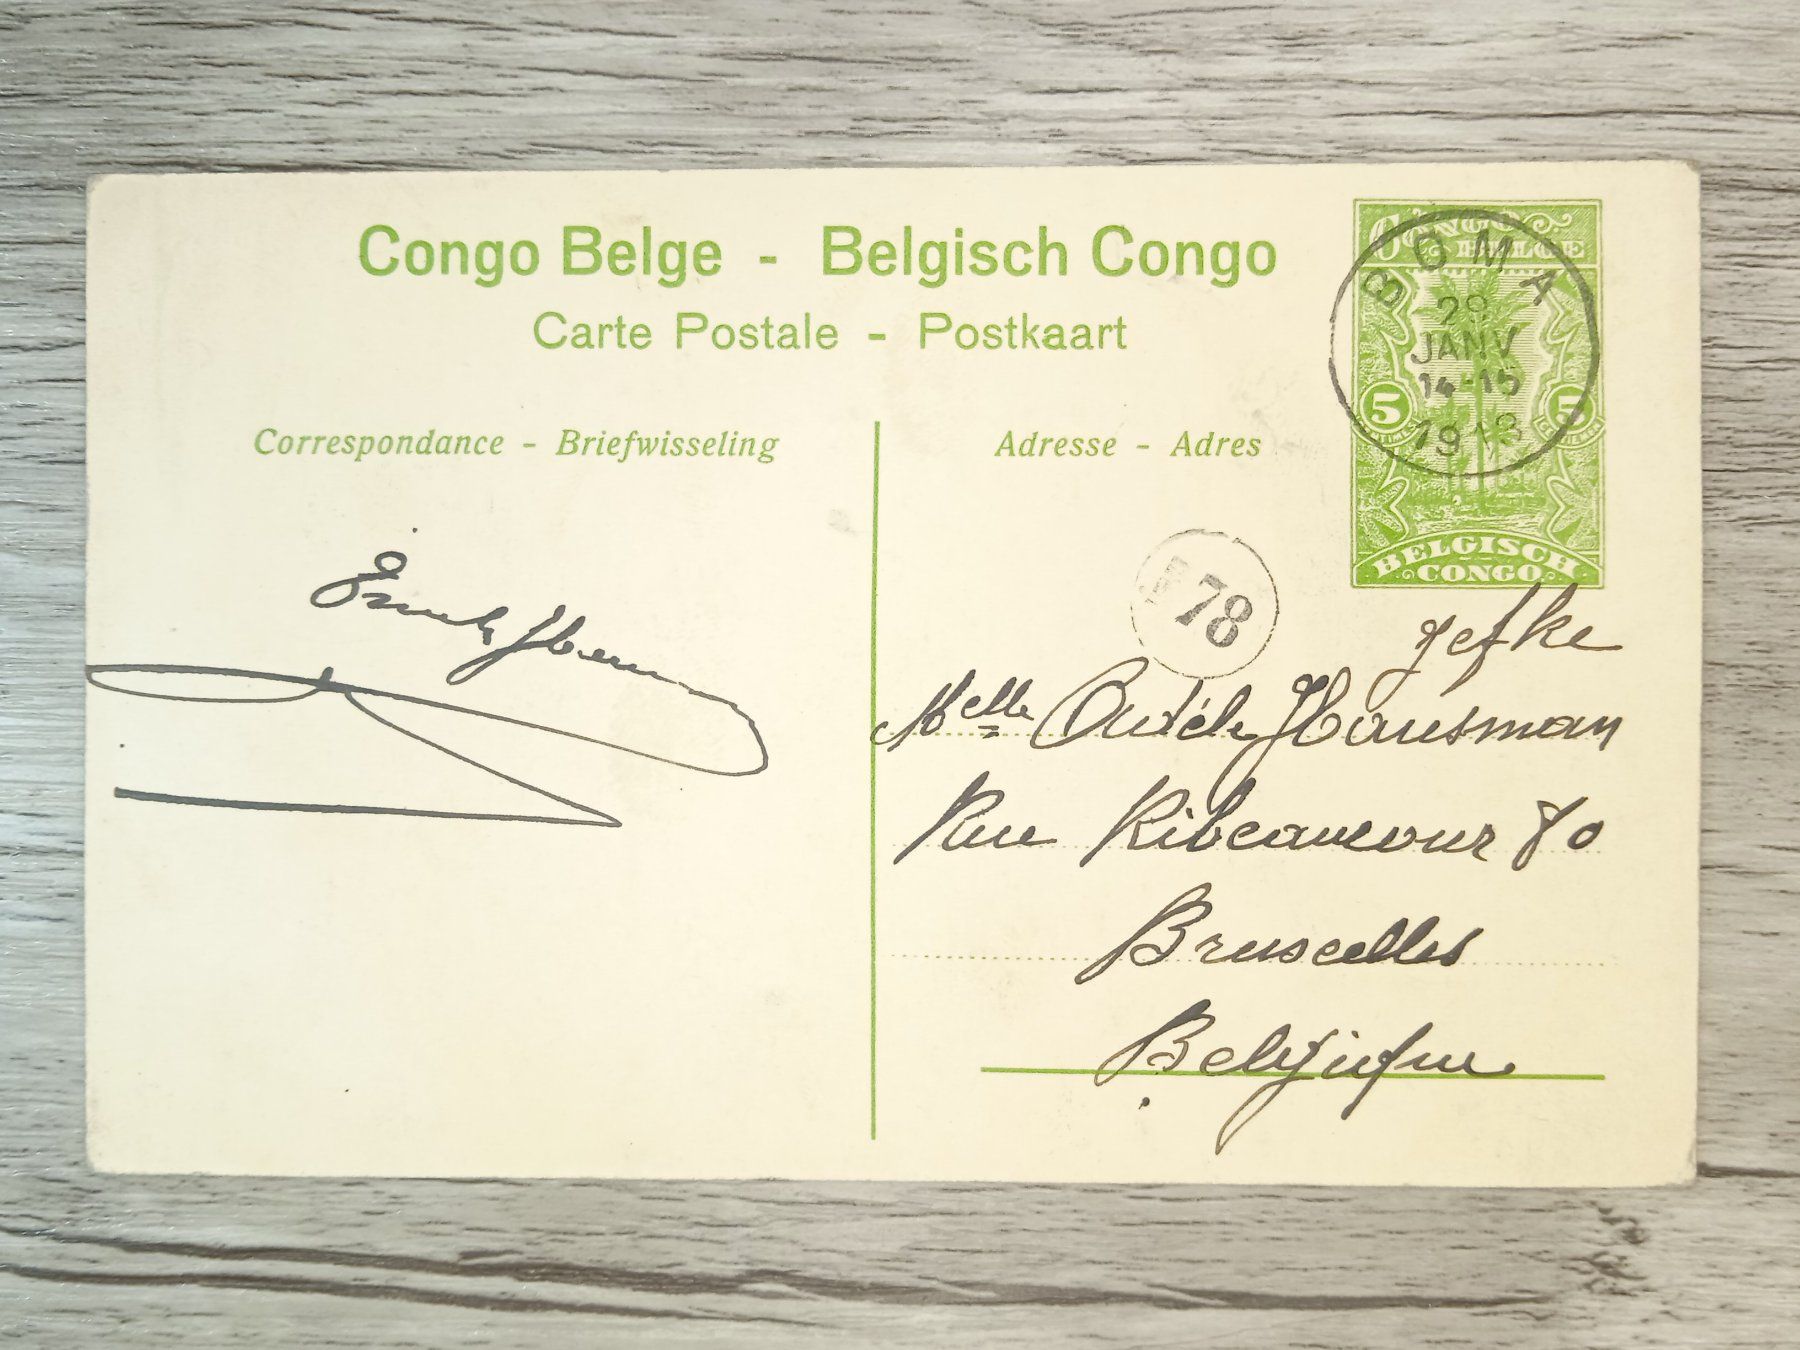 Congo Belge - Belgisch Congo
Carte Postale - Postkaart
CONGO
BELGE
BOMA
29
JANV
14-15
1913
5 5
BELGISCH
CONGO
Correspondance - Briefwisseling
Adresse - Adres
78
Jefke
Melle Hausman
Rue Ribeaucour 70
Bruxelles
Belgique